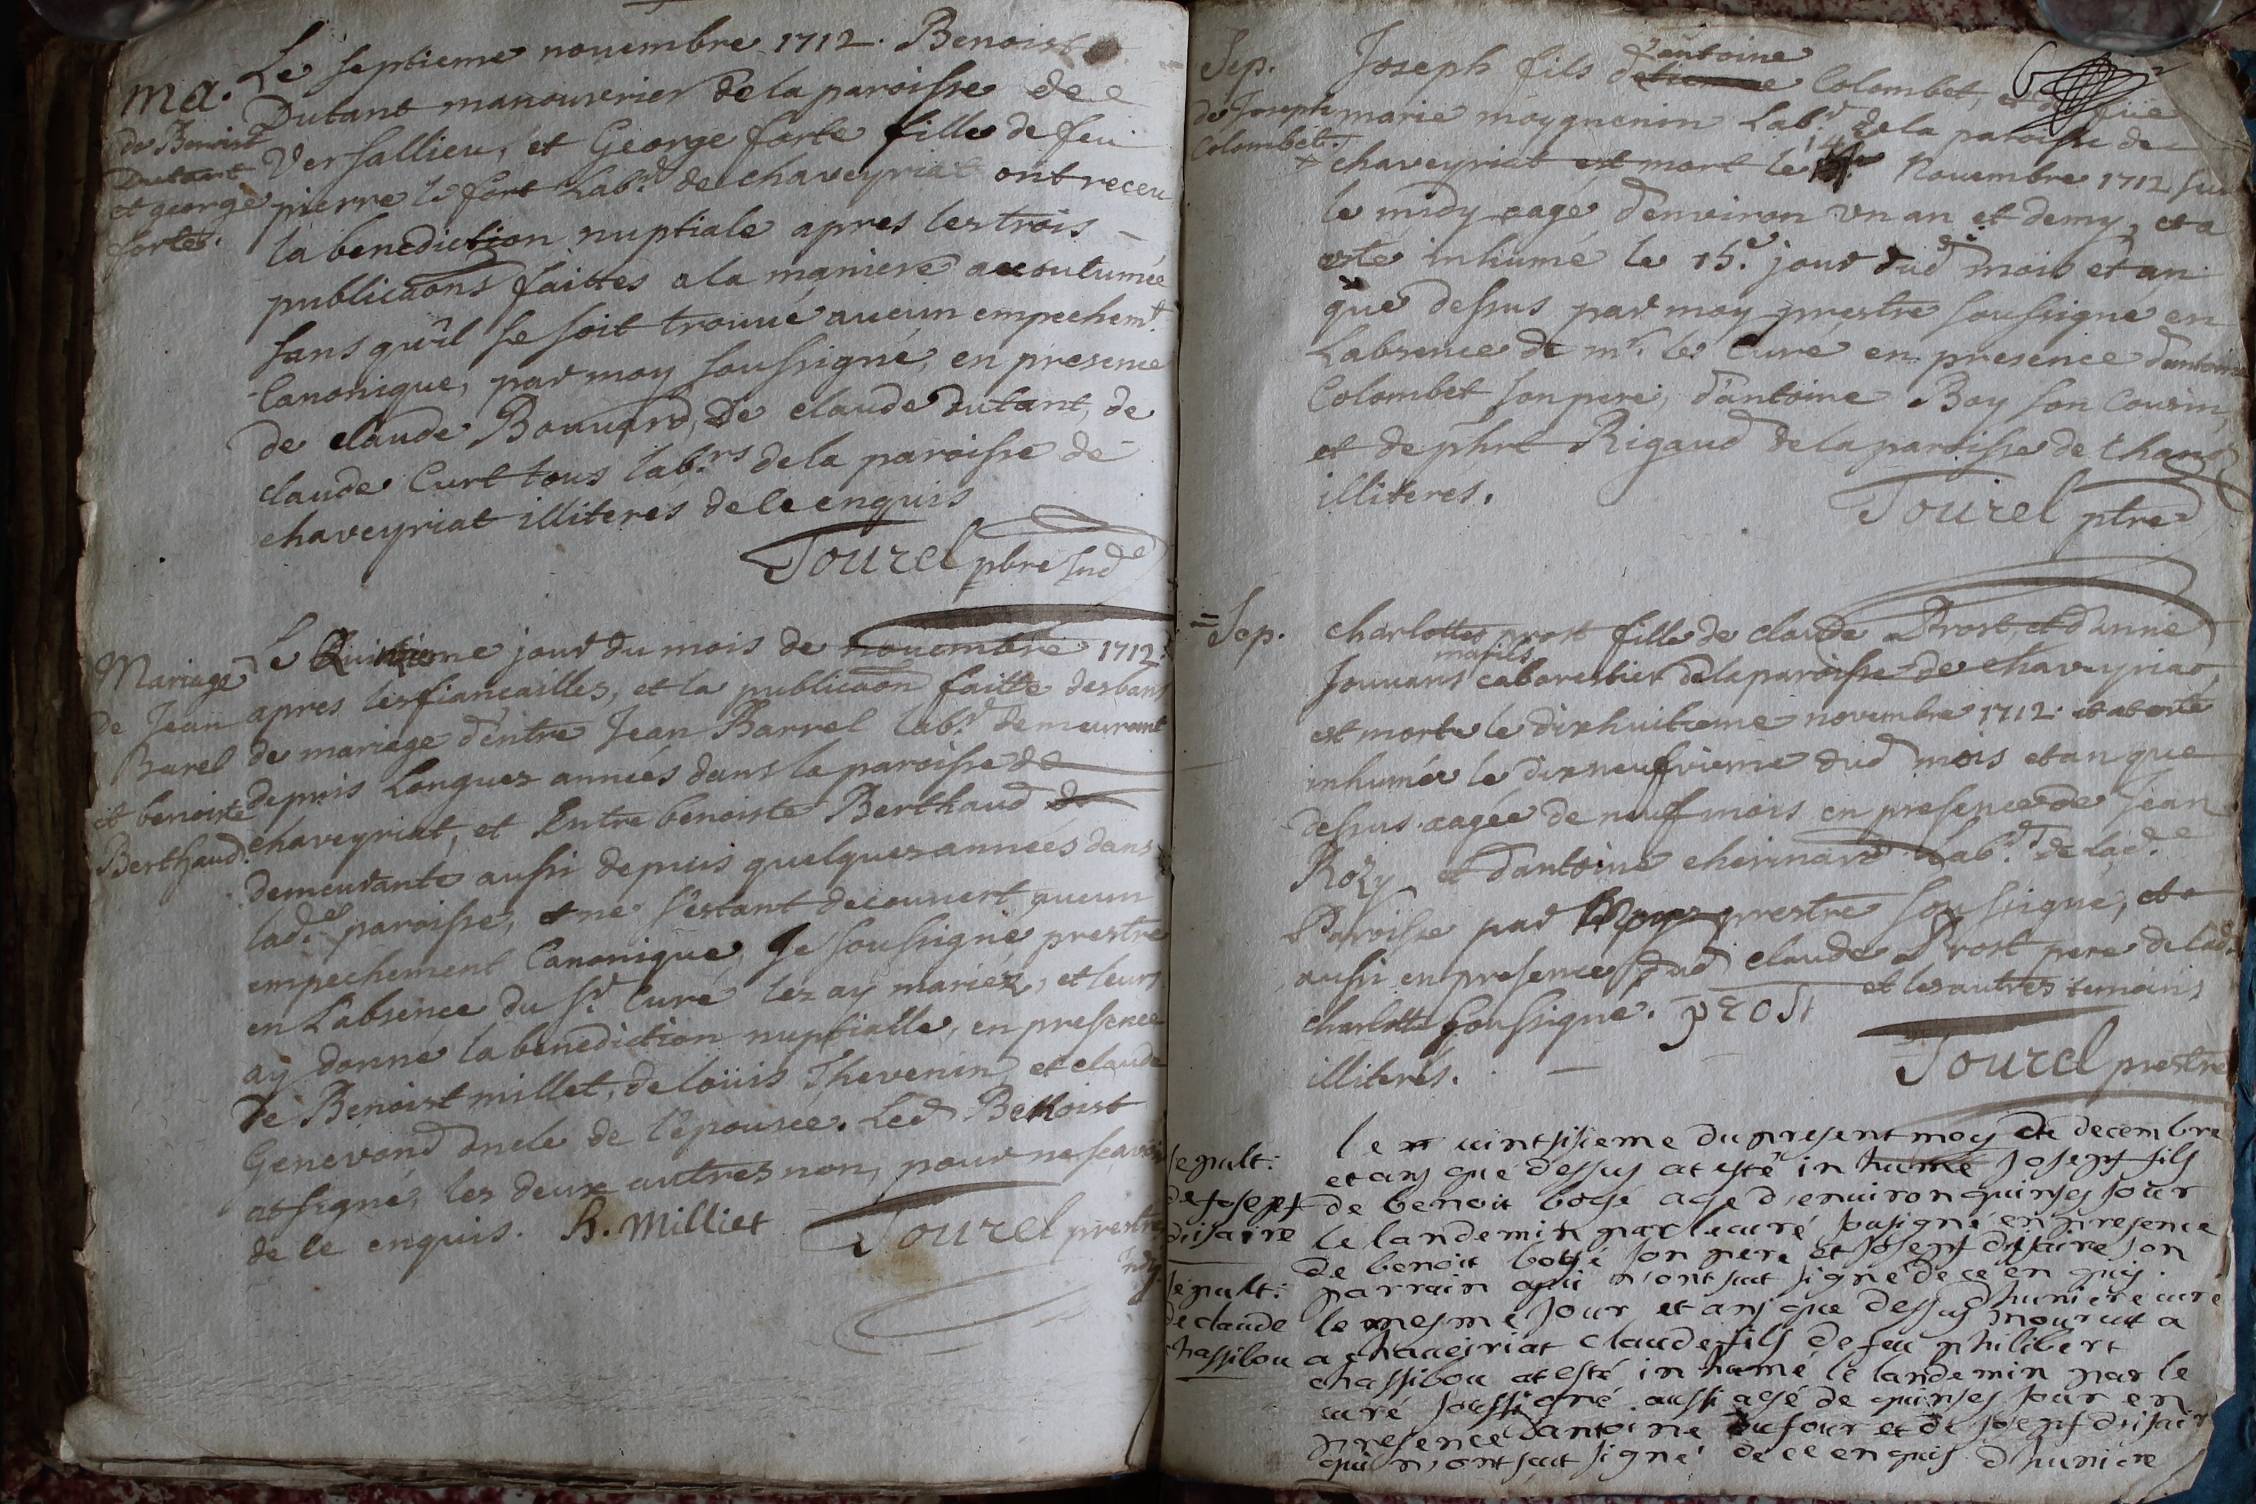 Le septieme novembre 1712. Benoist
ma. Dutant manouvrier de la paroisse de
de Benoist Versallieu, et George forte fille de feu
Dutant pierre le fort Labr. de chaveyriat ont receu
et george la benediction nuptiale apres les trois
forte. publicaons faittes a la maniere accoutumée
sans qu'il se soit trouvé aucun empechemt.
Canonique, par moy soussigné, en presence
de claude Bouvard, De claude dutant, de
claude Curt tous labrs. de la paroisse de
chaveyriat illiteres de le enquis
Tourel pbre Ind
Le Quinzieme jour du mois de novembre 1712.
Mariage apres les fiancailles, et la publicaon faitte des bans
de Jean de mariage d'entre Jean Barrel labr. demeurant
Barel depuis Longues années dans la paroisse de
et benoiste chaveyriat, et Entre benoiste Berthaud de
Berthaud. demeurante aussi depuis quelques années dans
lade. paroisse, et ne s'estant decouvert aucun
empechement Canonique, Je soussigné prestre
en L'absence du Sr. Curé lez ay mariez, et leurs
ay donné la benediction nuptialle, en presence
de Benoist millet, de loüis Thevenin, et claude
Genevond oncle de l'epousée. Led Benoist
at signé, les deux autres non, pour ne sçavoir
de le enquis. B. Milliet Tourel prestre
Ind.
Sep. Joseph fils d'antoine Colombet, et de fue
de Joseph marie moyguenin Labr. de la paroisse de
Colombet. chaveyriat est mort le 14e Novembre 1712 sur
le midy aagé d'environ un an et demy, et a
esté inhumé le 15e. jour dud mois et an
que dessus par moy prestre soussigné en
Labsence de mr. le Curé en presence d'antoine
Colombet son pere, d'antoine Boy son Cousin,
et de phrt Rigaud de la paroisse de
illiteres. Tourel ptre
Sep. charlotte prost fille de claude Prost, et d'anne
Jouvans mariés cabarestier de la paroisse de chaveyriat,
est morte le dixhuitieme novembre 1712. et at esté
inhumée le dixneufvieme dud mois et an que
dessus aagée de neuf mois en presence de Jean
Rozy et d'antoine cherinard Labrs. de lade.
Paroisse par moy prestre soussigné, et
aussi en presence dud claude Prost pere de lade
charlotte soussigné. prost et les autres temoins
illiterés. Tourel prestre
le vintsisieme du present moy de decembre
sepult: et ans que dessus at esté in humé Josepf fils
de Josepf de benoit bogé age d'environ quinses jour
disaire le landemin par le curé sousigné en presence
de benoit bogé son pere et Josepf disaire son
parrain qui n'ont sut signé de ce en quis.
dhuniere curé
sepult: le mesme jour et ans que dessus mourut a
de claude a chaveiriat claude fils de feu philibert
chassibou chassibou at esté in humé le landemin par le
curé soussigné aussi agé de quinses jour en
presence dantoine dufour et de Josepf disair
qui n'ont sut signé de ce en quis dhuniere